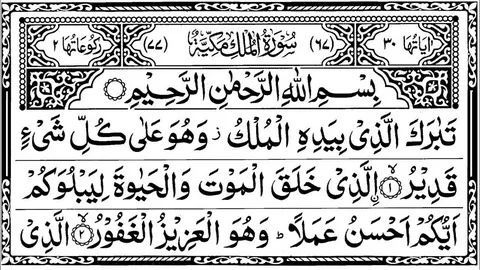 اٰیَاتُهَا ۳۰ (۶۷) سُوْرَةُ الْمُلْكِ مَكِّیَّةٌ (۷۷) رُكُوْعَاتُهَا ۲
بِسْمِ اللّٰهِ الرَّحْمٰنِ الرَّحِیْمِ
تَبٰرَكَ الَّذِیْ بِیَدِهِ الْمُلْكُ ؗ وَهُوَ عَلٰی كُلِّ شَیْءٍ
قَدِیْرُ ۙ﴿۱﴾ اِ۟لَّذِیْ خَلَقَ الْمَوْتَ وَالْحَیٰوةَ لِیَبْلُوَكُمْ
اَیُّكُمْ اَحْسَنُ عَمَلًا ؕ وَهُوَ الْعَزِیْزُ الْغَفُوْرُ ۙ﴿۲﴾ الَّذِیْ